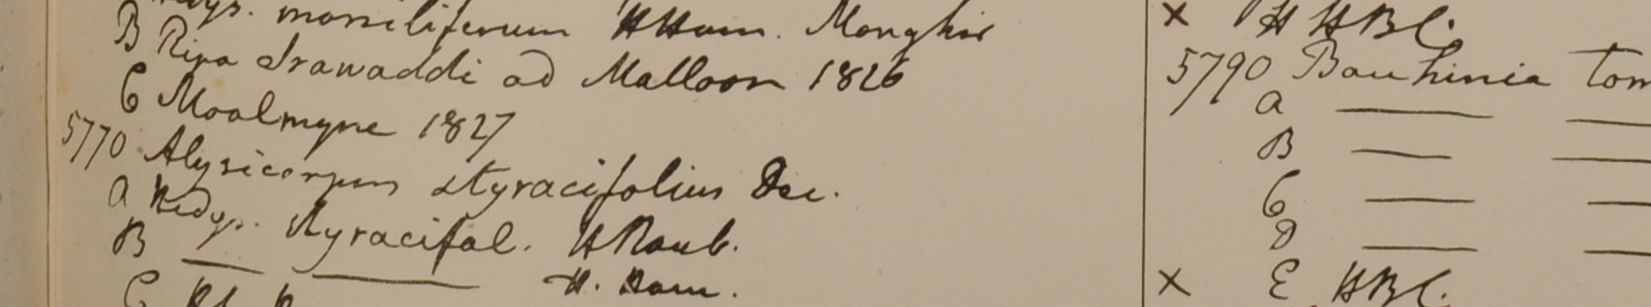 moniliferum HHam. Monghir
B Ripa Irawaddi ad Malloon 1826
C Moalmyne 1827
5770 Alysicarpus styracifolius Dec.
a Hedys. styracifol. H Roxb.
B — — H. Ham.
C
x H HBC.
5790 Bauhinia tom
a — —
B — —
C — —
D — —
x E HBC.